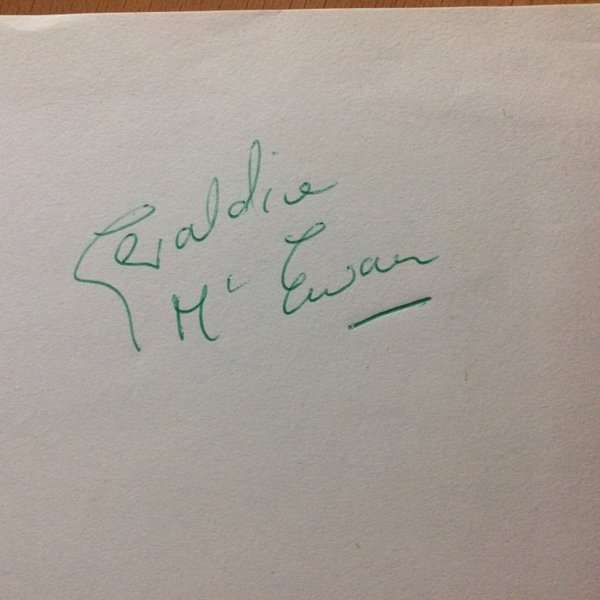 Geraldine
Mc Ewan